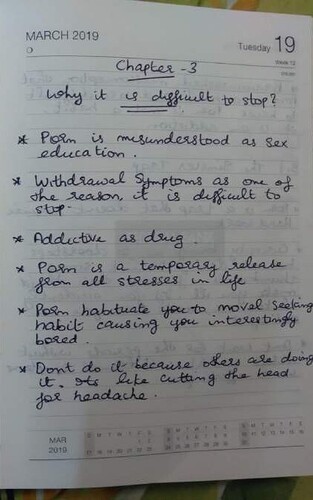 MARCH 2019
Tuesday 19
Week 12
Chapter - 3
Why it is difficult to stop?
* Porn is misunderstood as sex
education.
* Withdrawal Symptoms as one of
the reason, it is difficult to
stop.
* Addictive as drug.
* Porn is a temporary release
from all stresses in life
* Porn habituate you to novel seeking
habit causing you interestingly
bored.
* Dont do it because others are doing
it. Its like cutting the head
for headache.
MAR
2019